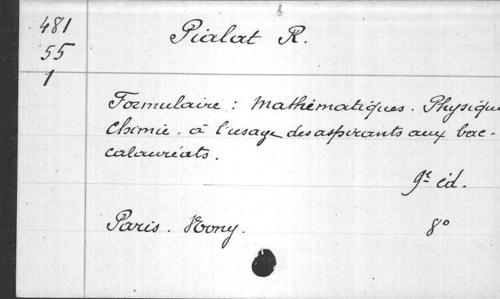 481
55
1
Pialat R.
Formulaire : Mathématiques. Physique
Chimie. à l'usage des aspirants aux bac-
calauréats.
9e éd.
Paris. Nony. 8°